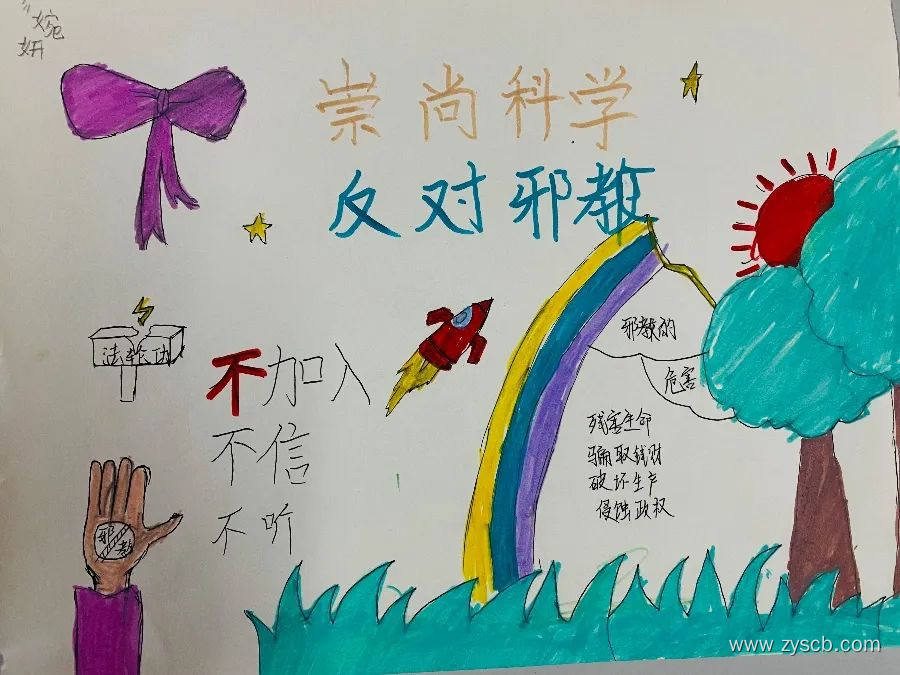 婉
妍
崇尚科学
反对邪教
法轮功
不加入
不信
不听
邪教
邪教的
危害
残害生命
骗取钱财
破坏生产
侵蚀政权
www.zyscb.com